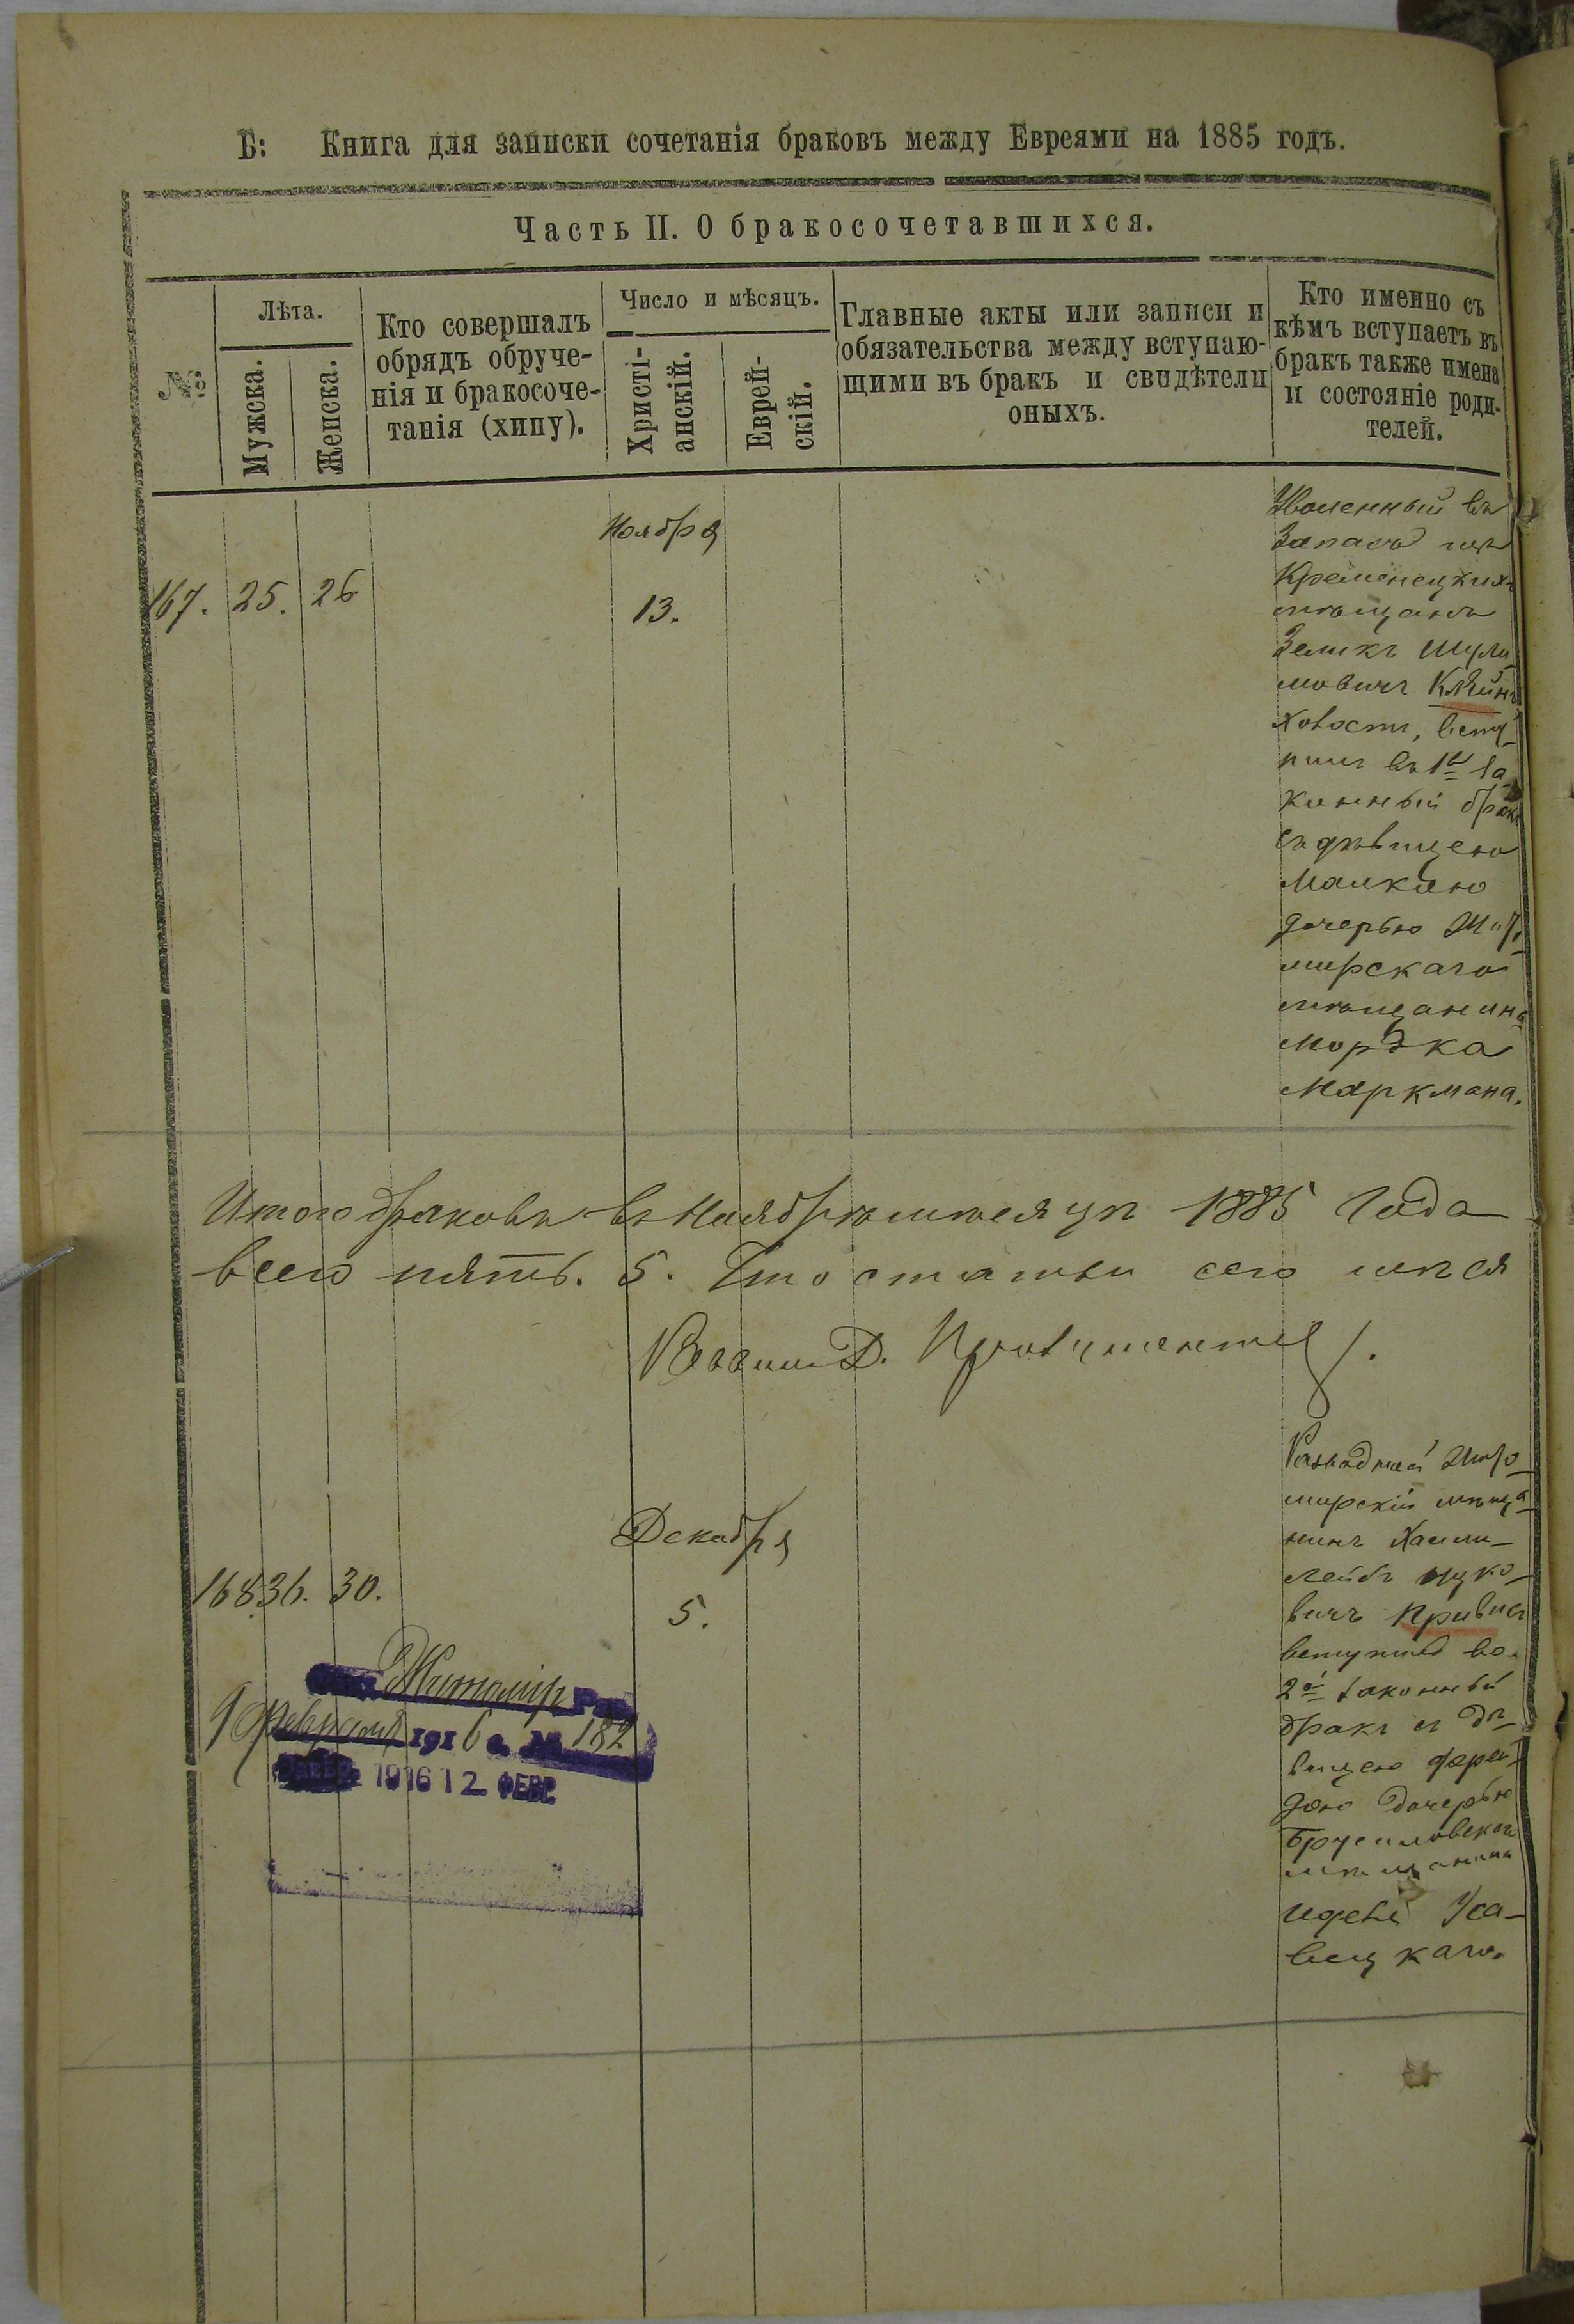 Б: Книга для записки сочетанія браковъ между Евреями на 1885 годъ.
Часть II. О бракосочетавшихся.
№
Лѣта.
Мужска.
Женска.
Кто совершалъ
обрядъ обруче-
нія и бракосоче-
танія (хипу).
Число и мѣсяцъ.
Христі-
анскій.
Еврей-
скій.
Главные акты или записи и
обязательства между вступаю-
щими въ бракъ и свидѣтели
оныхъ.
Кто именно съ
кѣмъ вступаетъ въ
бракъ также имена
и состояніе роди-
телей.
Ноября
167. 25. 26 13.
Уволенный въ
Запасъ изъ
Кременецкихъ
мѣщанъ
Зеликъ Шули
мовичъ Клейнъ
вету-
пилъ въ 1й за
конный бракъ
съ дѣвицею
Малкою
дочерью Жит
мирскаго
мѣщанина
Мордка
Маркмана.
Итого браковъ въ Ноябрѣ мѣсяцѣ 1885 Года
всего пять. 5.
Раввин Д.
Декабря
168. 36. 30. 5.
Разводный Жито
мирскій мѣща
нинъ Хаим-
Лейбъ Ицко-
вичъ Кривис
вступилъ во
2й законный
бракъ съ дѣ-
вицею Фрей-
дою дочерью
Брусиловскаго
мѣщанина
Уса-
вецкаго.
Житомір
9 Февраля 1916 г. № 182
1916 12 ФЕВР.